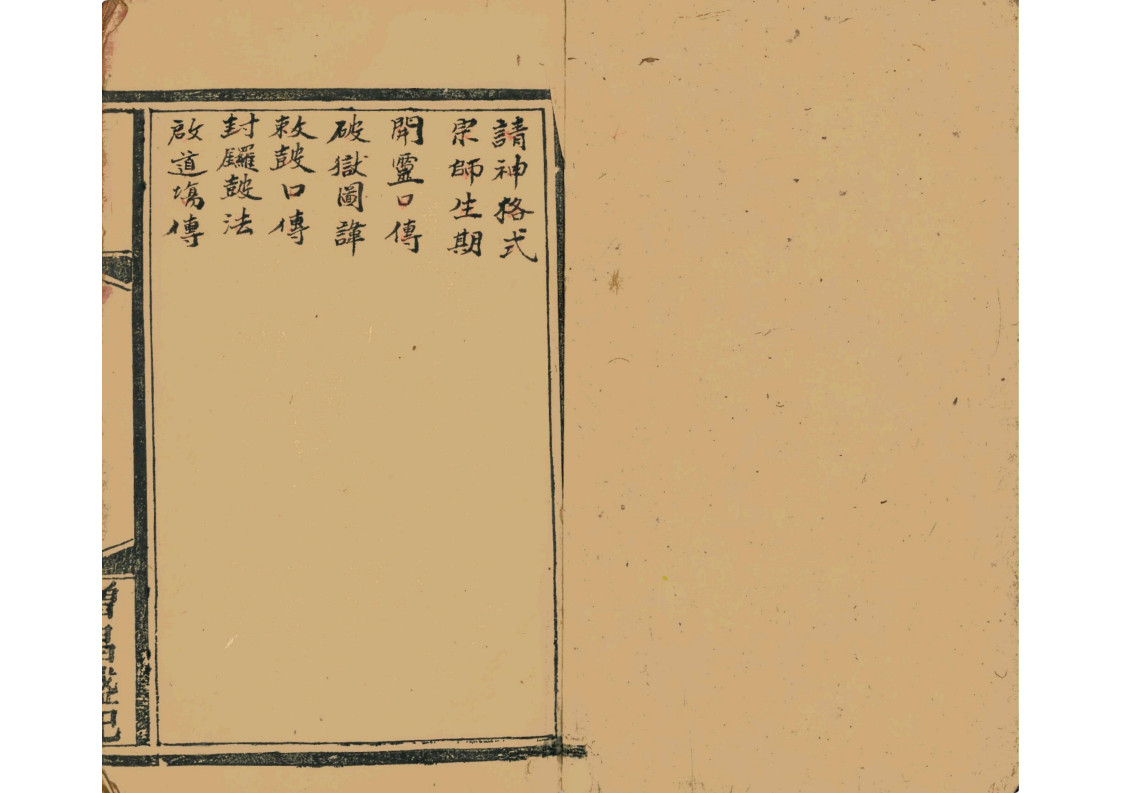 請神格式
宗師生期
開靈口傳
破獄圖諱
敕鼓口傳
封鑼鼓法
啟道場傳